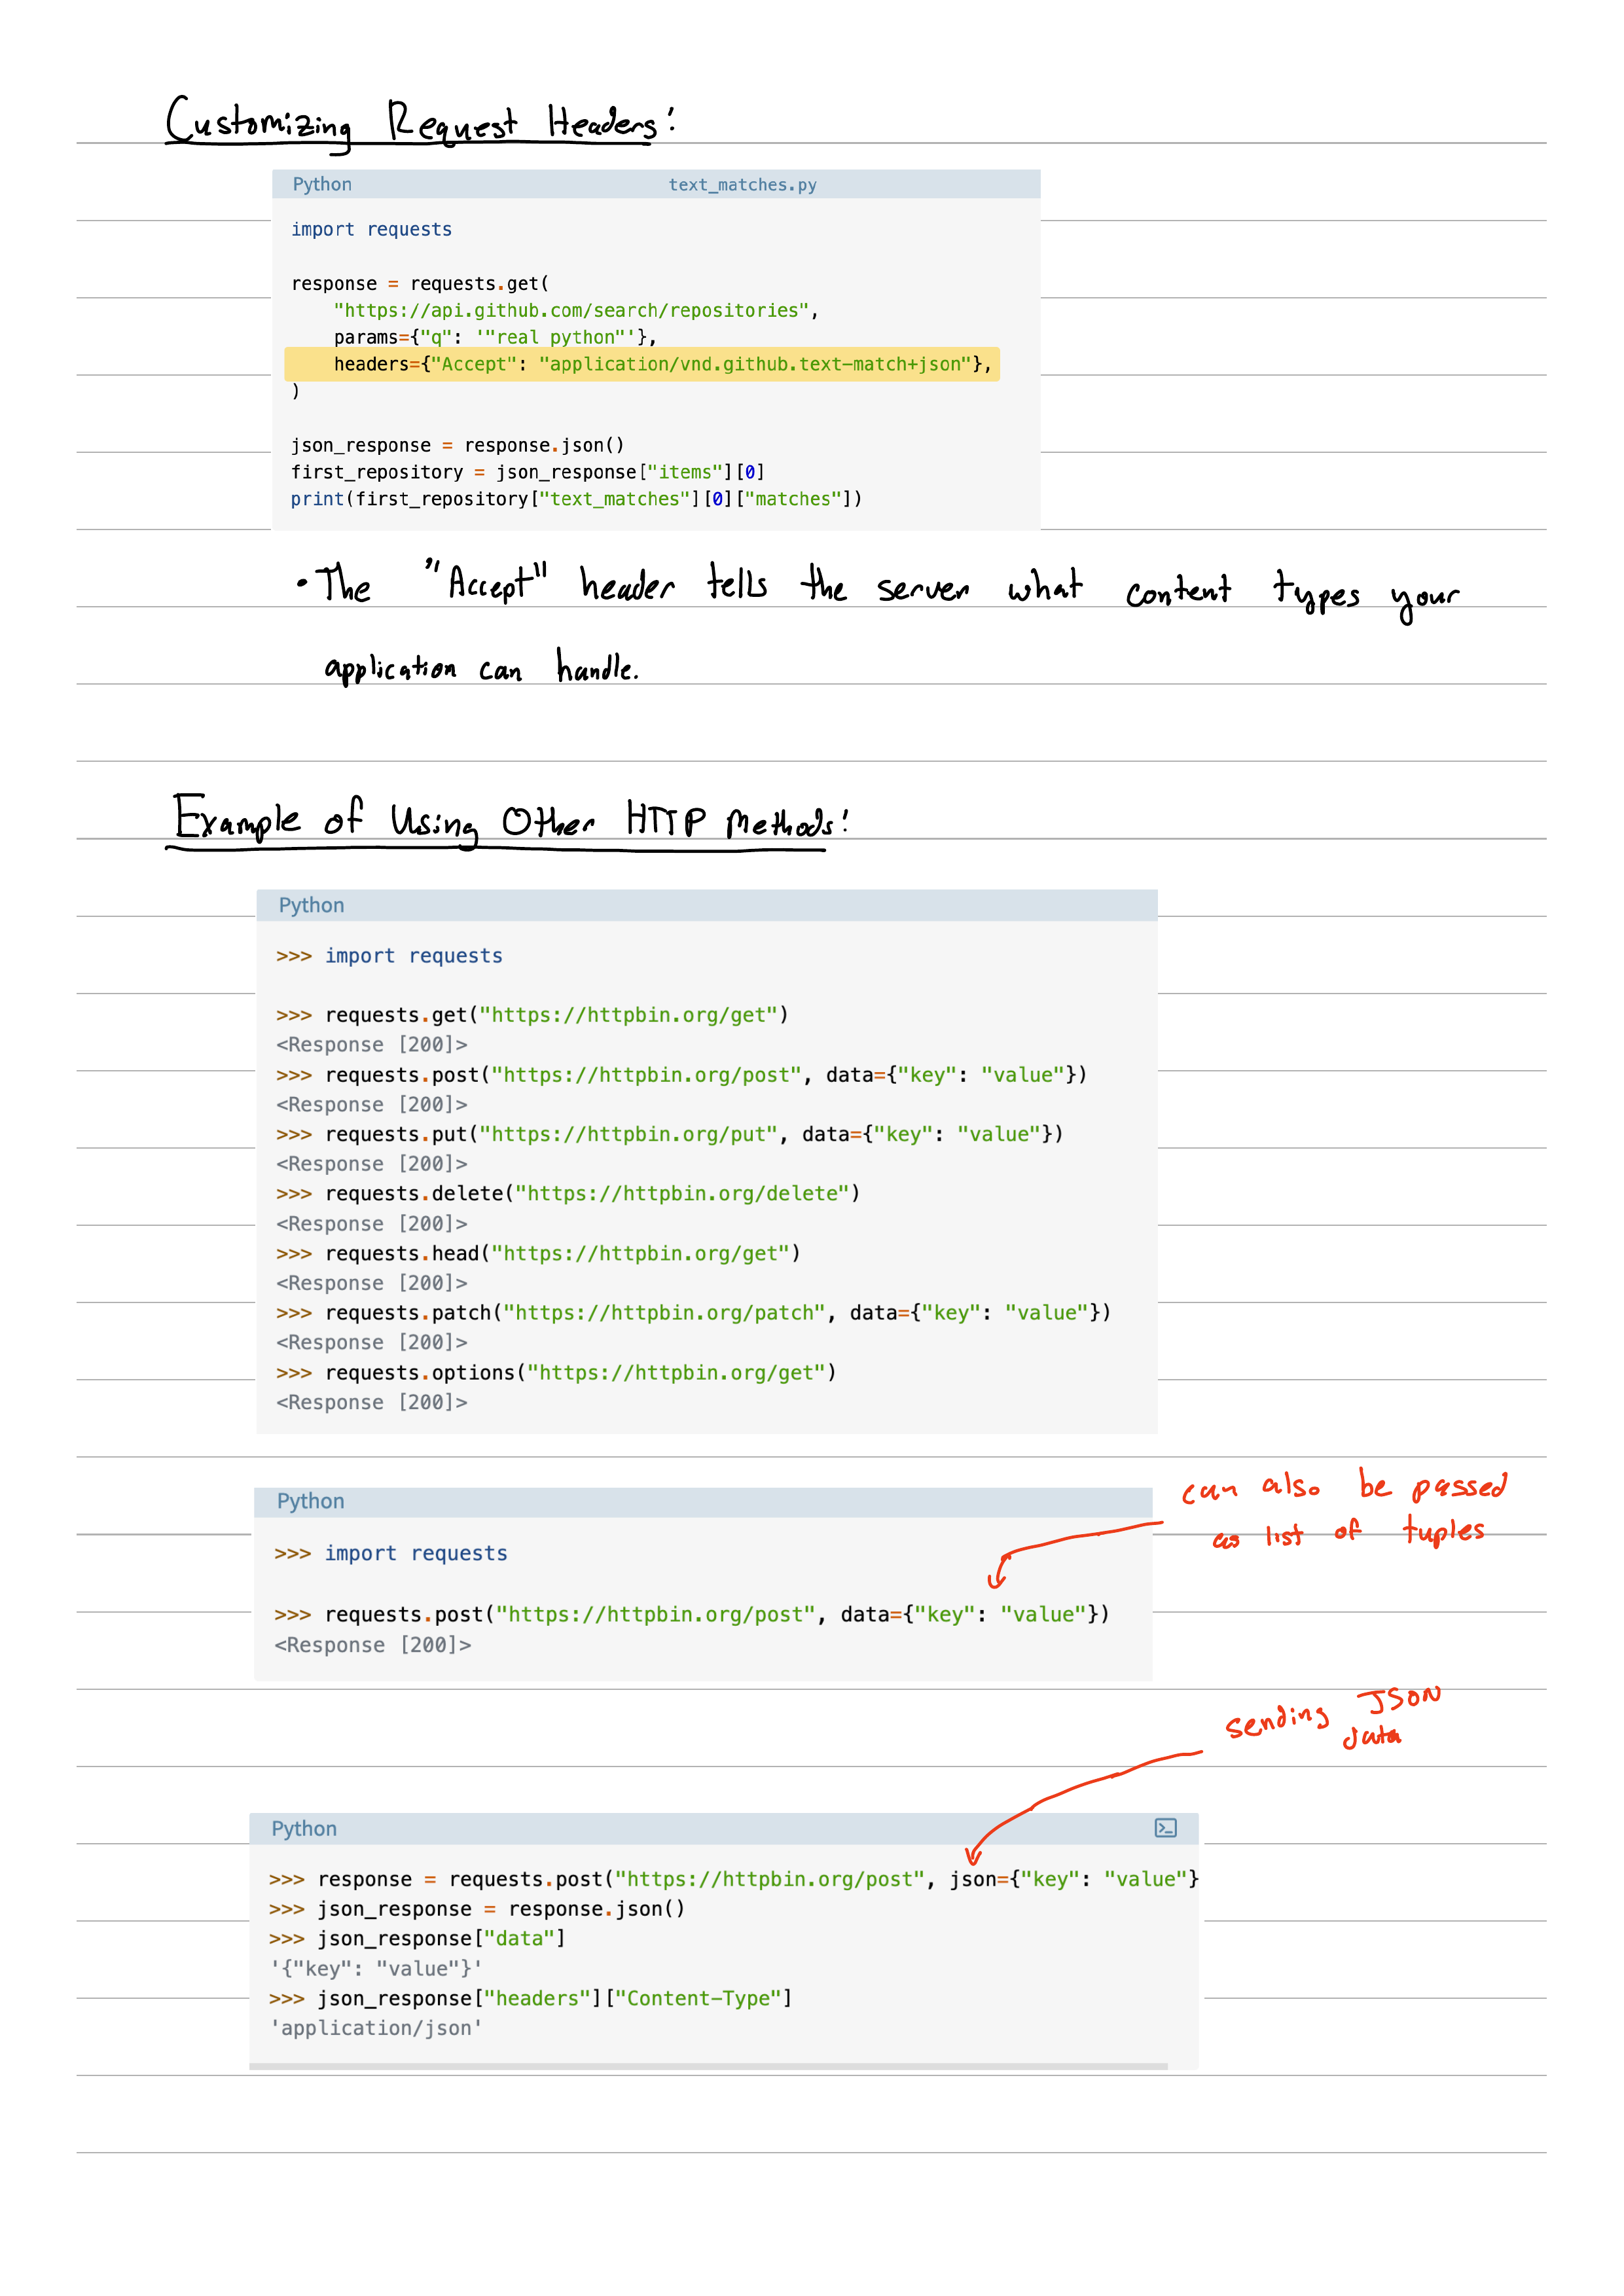 Customizing Request Headers:
Python text_matches.py
import requests
response = requests.get(
    "https://api.github.com/search/repositories",
    params={"q": '"real python"'},
    headers={"Accept": "application/vnd.github.text-match+json"},
)
json_response = response.json()
first_repository = json_response["items"][0]
print(first_repository["text_matches"][0]["matches"])
• The "Accept" header tells the server what content types your
application can handle.
Example of Using Other HTTP Methods:
Python
>>> import requests
>>> requests.get("https://httpbin.org/get")
<Response [200]>
>>> requests.post("https://httpbin.org/post", data={"key": "value"})
<Response [200]>
>>> requests.put("https://httpbin.org/put", data={"key": "value"})
<Response [200]>
>>> requests.delete("https://httpbin.org/delete")
<Response [200]>
>>> requests.head("https://httpbin.org/get")
<Response [200]>
>>> requests.patch("https://httpbin.org/patch", data={"key": "value"})
<Response [200]>
>>> requests.options("https://httpbin.org/get")
<Response [200]>
can also be passed
as list of tuples
Python
>>> import requests
>>> requests.post("https://httpbin.org/post", data={"key": "value"})
<Response [200]>
sending JSON
data
Python
>>> response = requests.post("https://httpbin.org/post", json={"key": "value"}
>>> json_response = response.json()
>>> json_response["data"]
'{"key": "value"}'
>>> json_response["headers"]["Content-Type"]
'application/json'